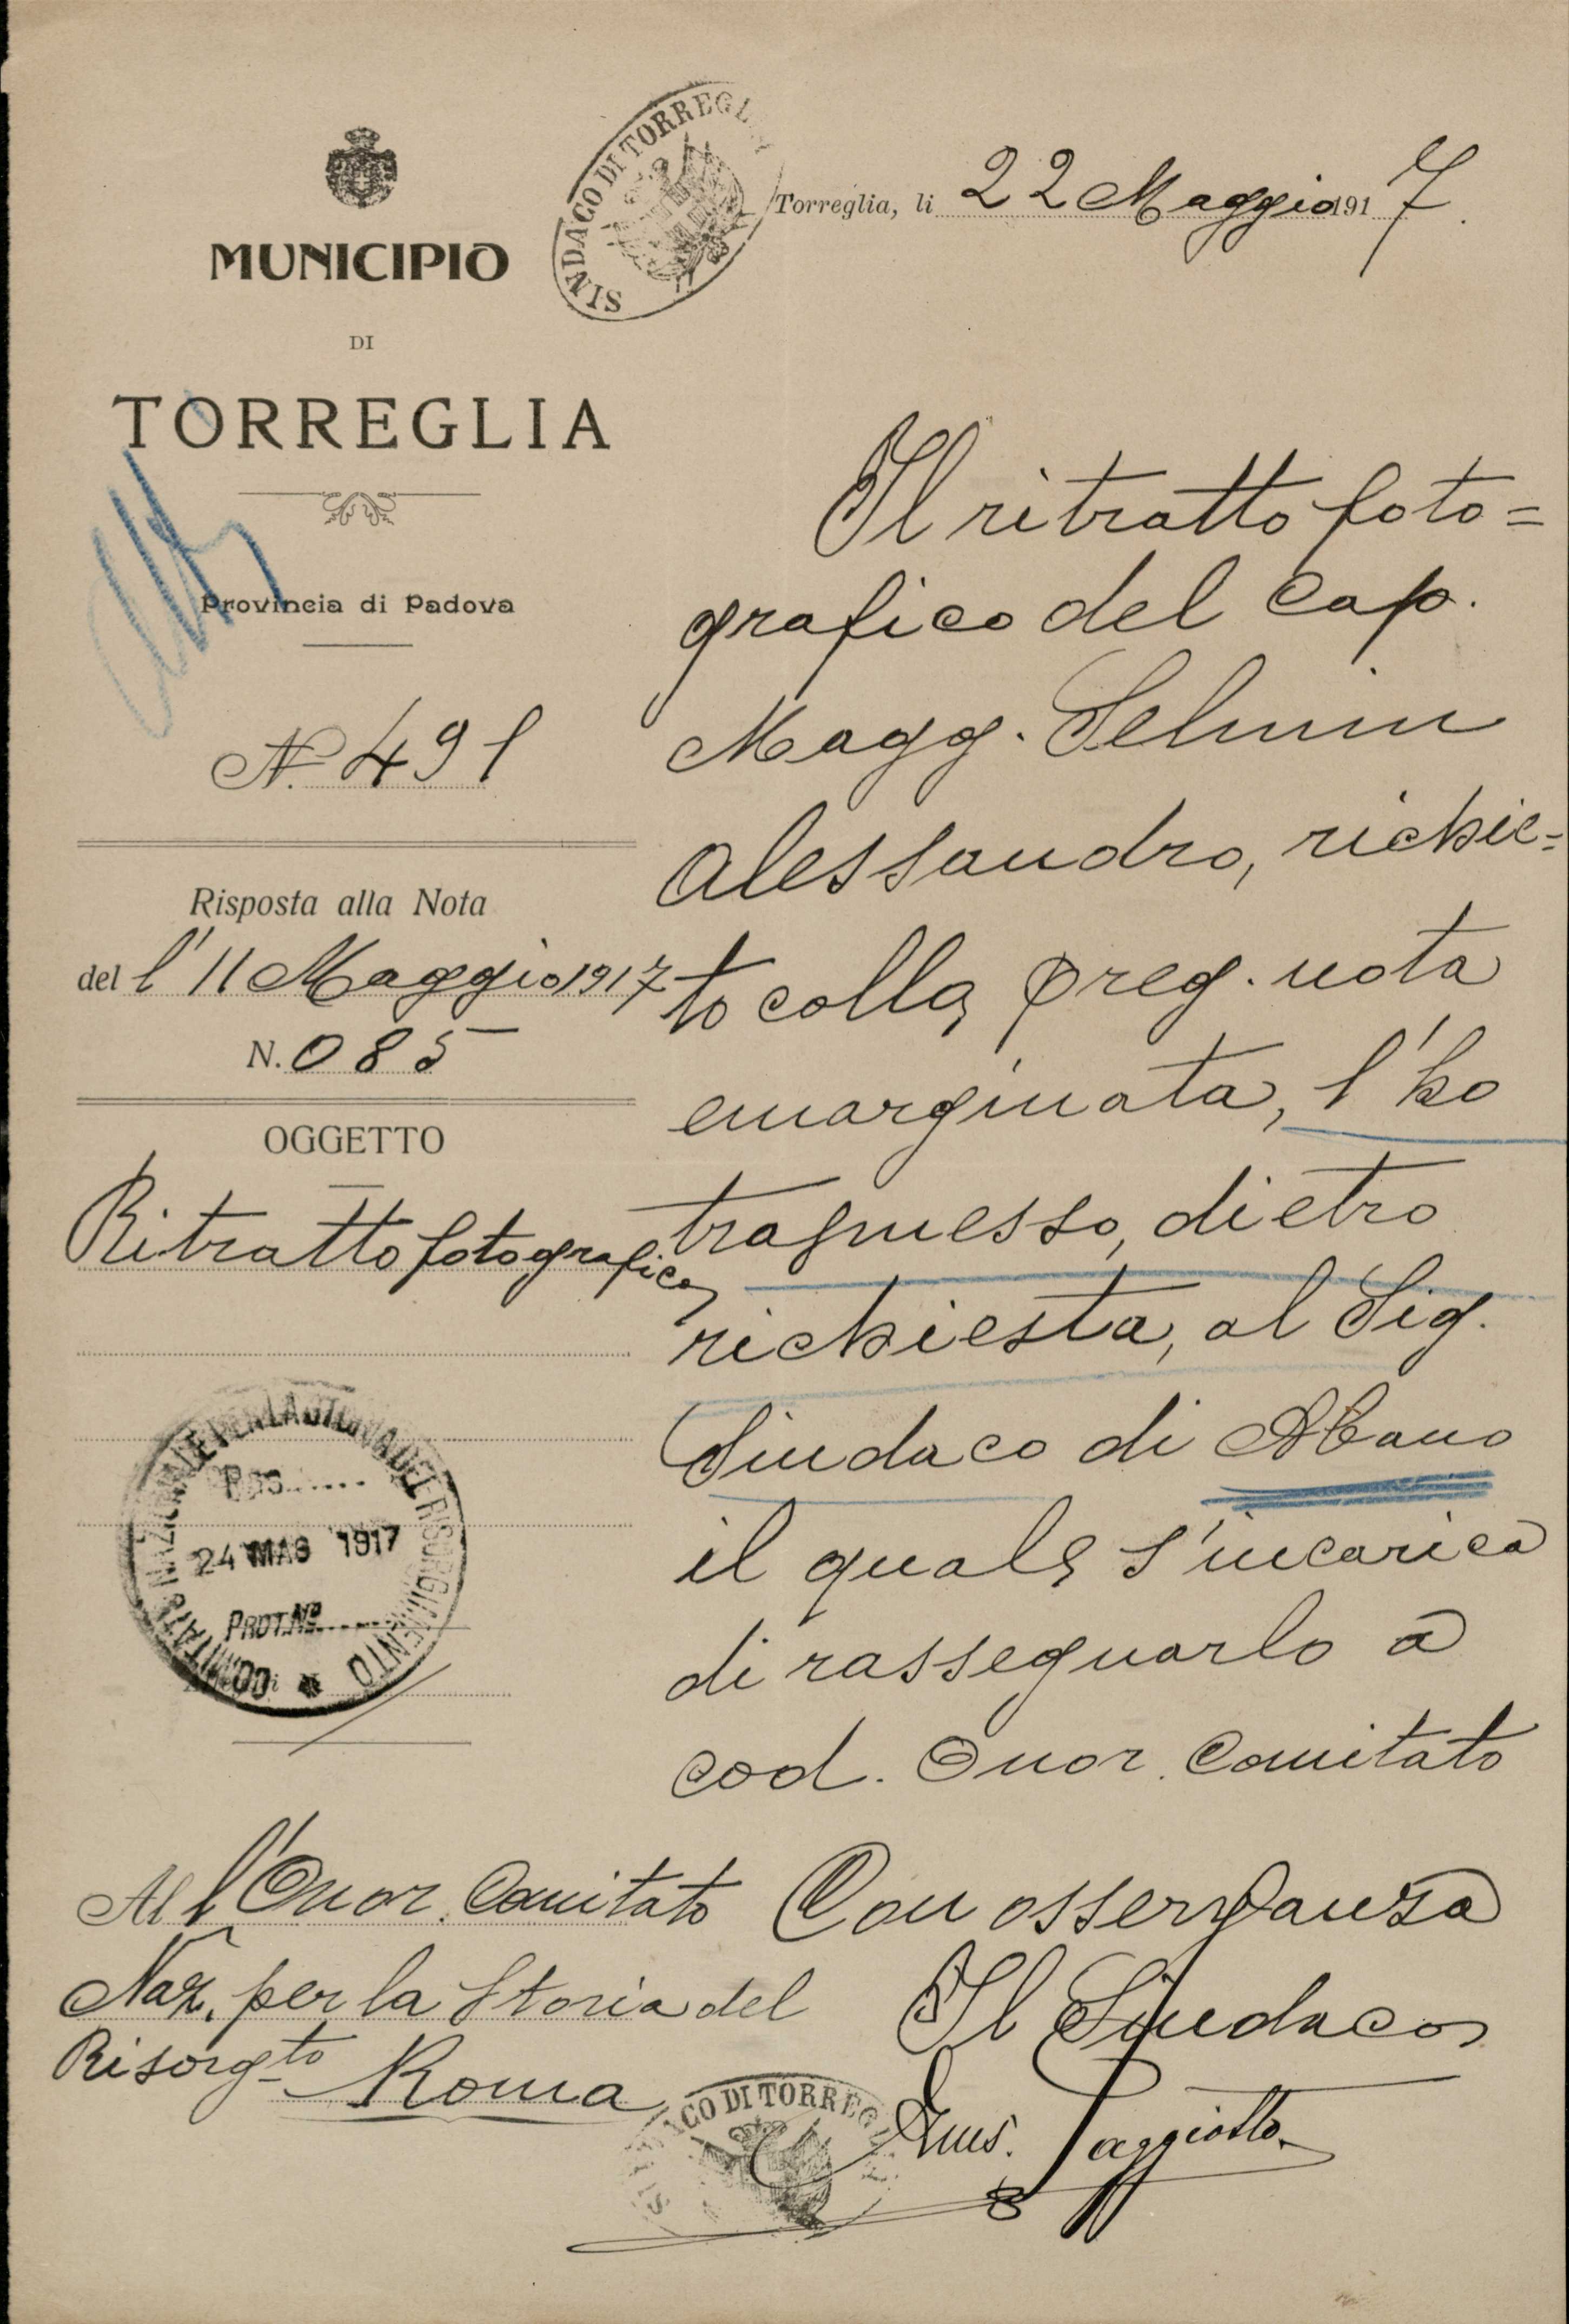 SINDACO DI TORREGLIA
Torreglia, li 22 Maggio 1917
MUNICIPIO
DI
TORREGLIA
Provincia di Padova
N. 491
Risposta alla Nota
del l'11 Maggio 1917
N. 085
OGGETTO
Ritratto fotografico
COMITATO NAZIONALE PER LA STORIA DEL RISORGIMENTO
Pos.......
24 MAG 1917
PROT. Nº.......
All'Onor. Comitato
Naz. per la Storia del
Risorg.to Roma
Il ritratto foto=
grafico del Cap.
Magg. Selmin
Alessandro, richie=
to colla preg. nota
emarginata, l'ho
trasmesso, dietro
richiesta, al Sig.
Sindaco di Abano
il quale s'incarica
di rassegnarlo a
cod. Onor. Comitato
Con osservanza
Il Sindaco
SINDACO DI TORREGLIA